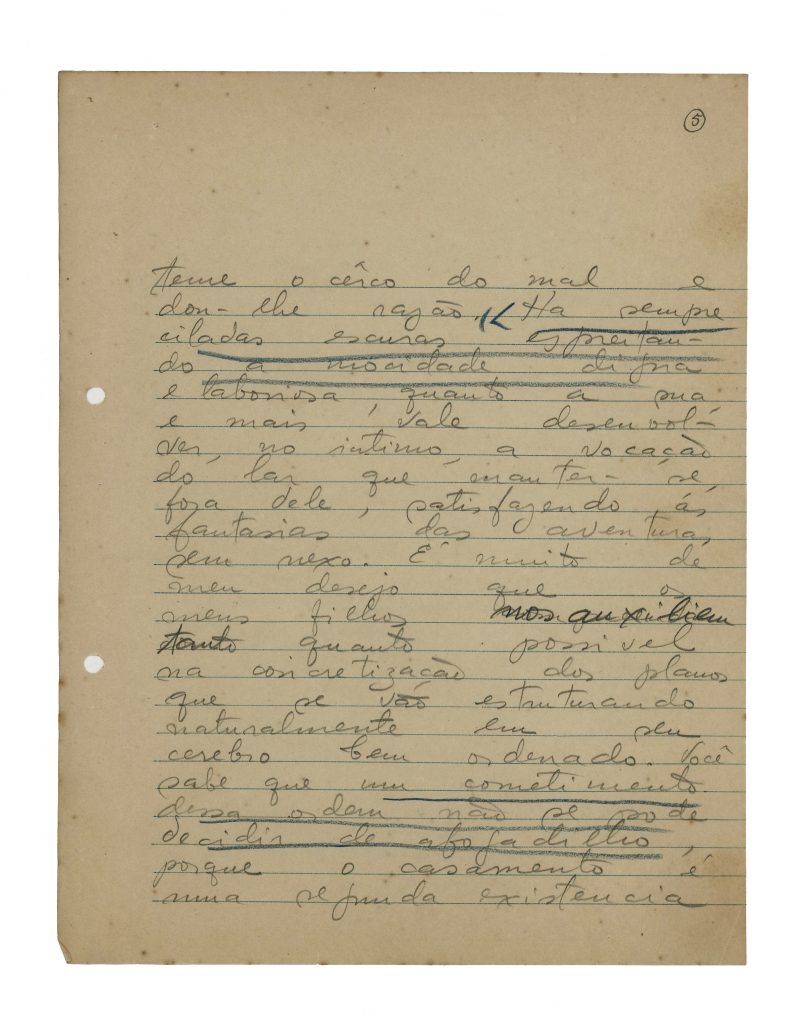 5
teme o cêrco do mal e
dou-lhe razão. Ha sempre
ciladas escuras espreitan-
do a mocidade digna
e laboriosa, quanto a sua,
e mais vale desenvol-
ver, no intimo, a vocação
do lar que manter-se,
fora dele, satisfazendo ás
fantasias das aventuras
sem nexo. É muito de
meu desejo que os
meus filhos nos auxiliem
tanto quanto possivel
na concretização dos planos
que se vão estruturando
naturalmente em seu
cerebro bem ordenado. Você
sabe que um cometimento
dessa ordem não se pode
decidir de afogadilho,
porque o casamento é
uma segunda existencia